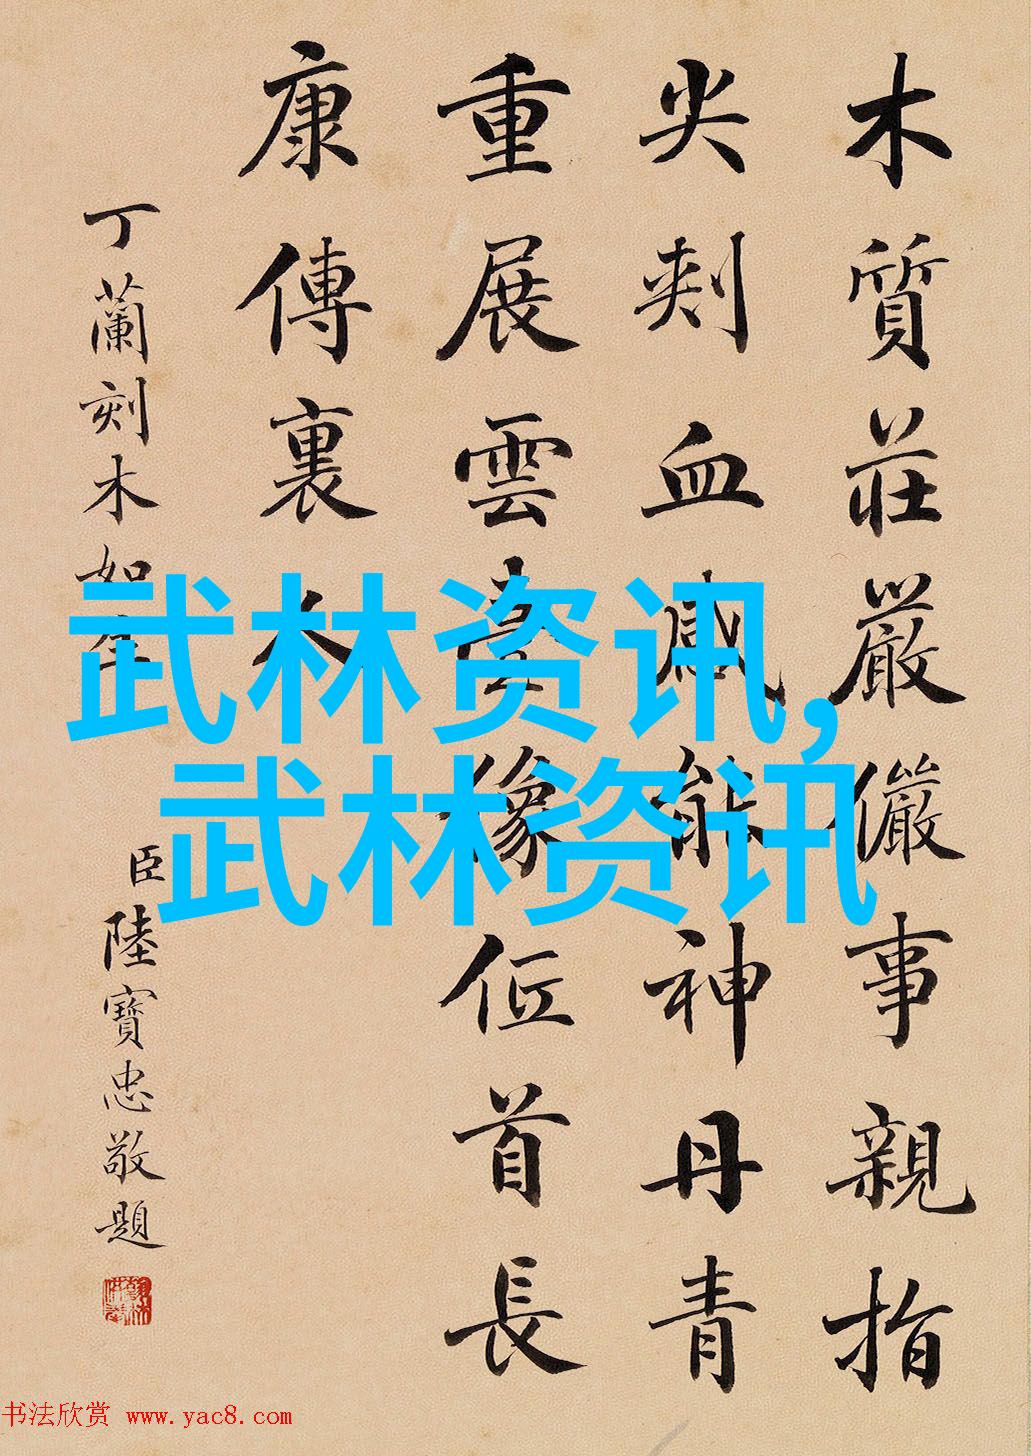 木質莊嚴儼事親指
尖刾血感能神丹青
重展雲臺像首長
康傳裏人
丁蘭刻木如生
臣陸寶忠敬題
武林资讯,
武林资讯
书法欣赏 www.yac8.com